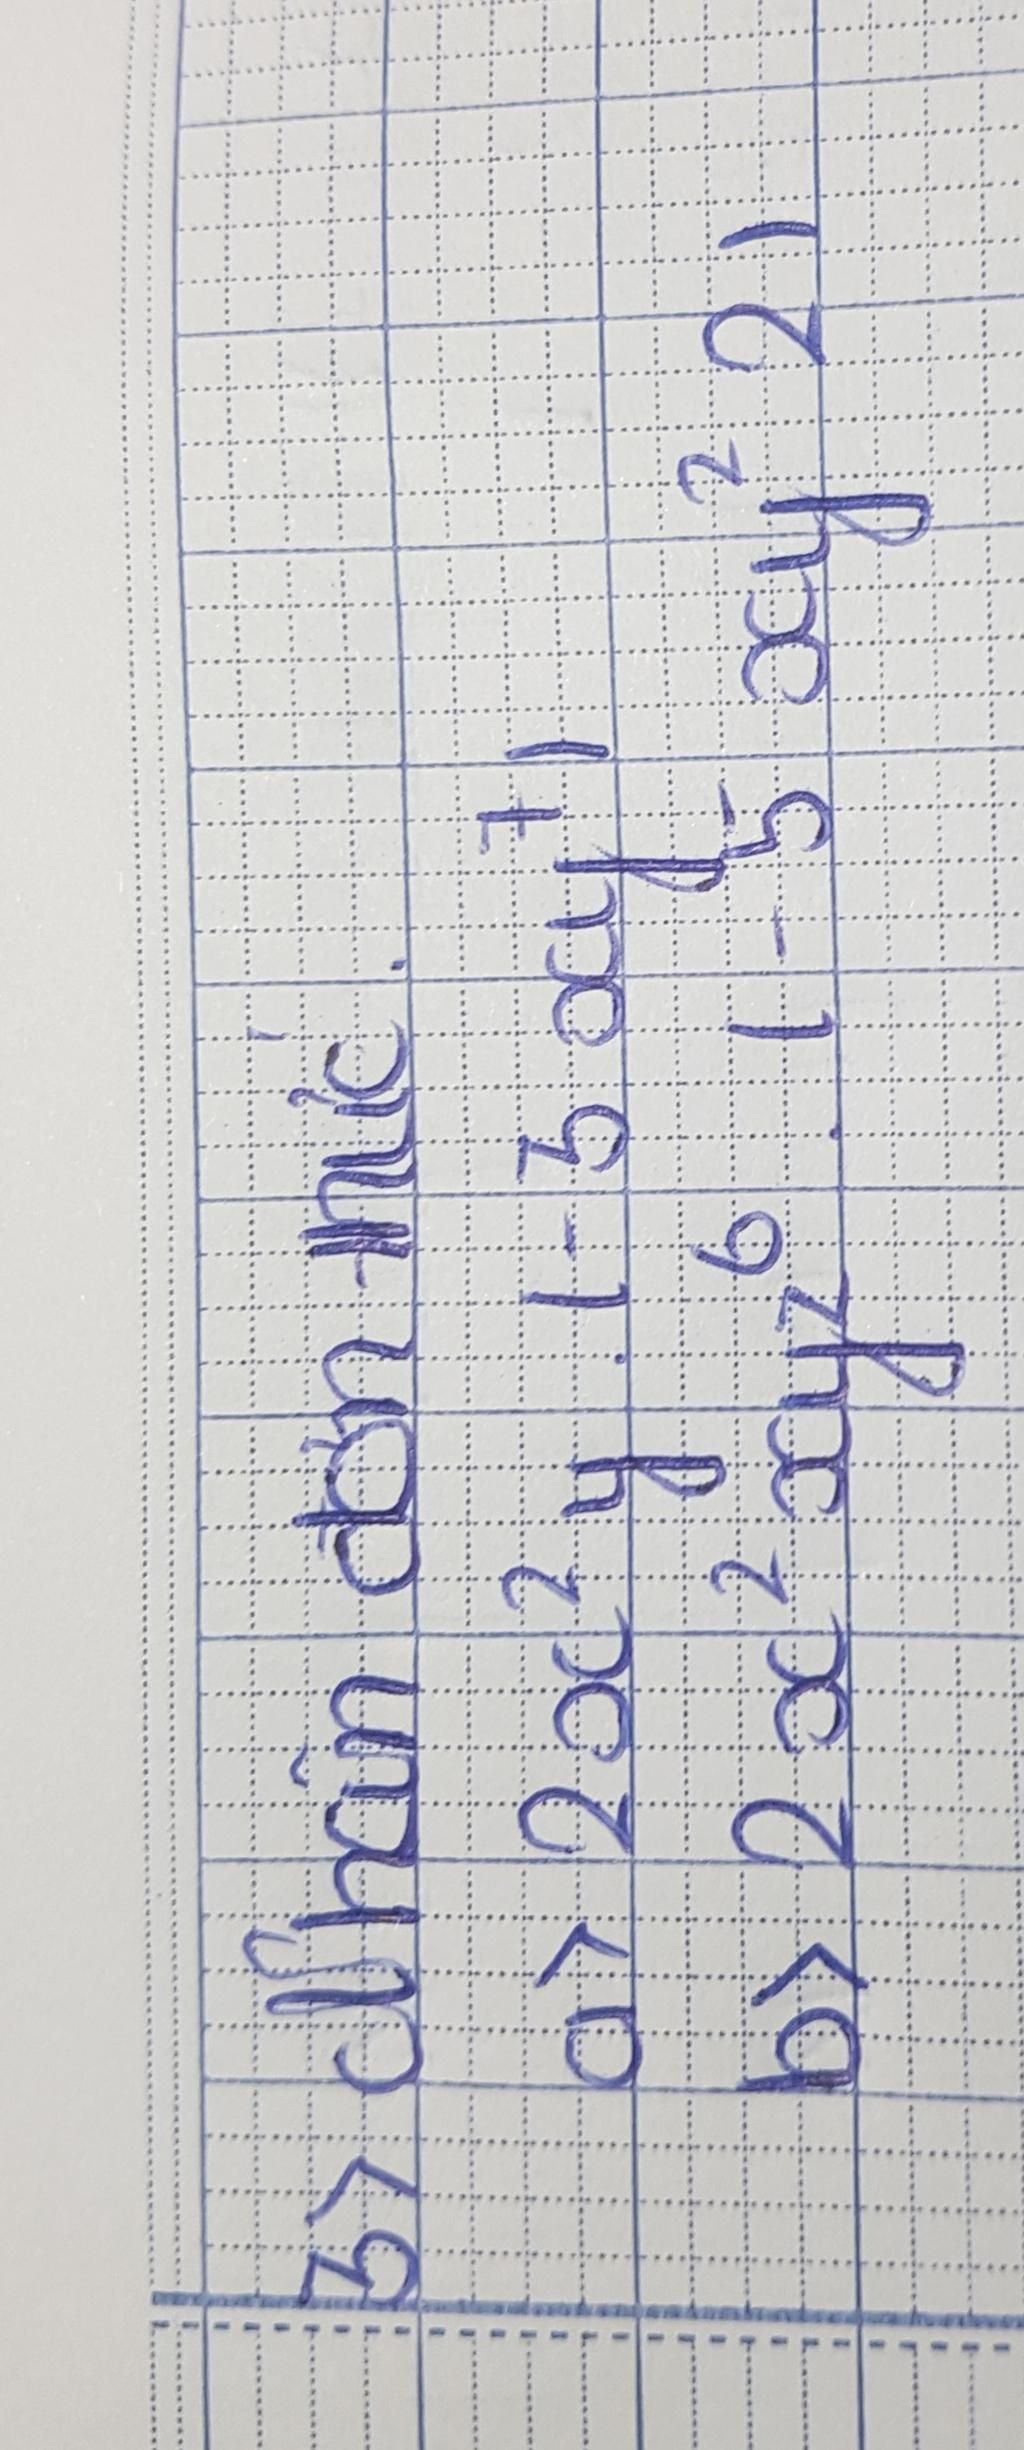 3> Nhân đơn thức.
a> 2x² y . (-3 xy⁷)
b> 2 x² xyz⁶ . (-5 xy² 2)